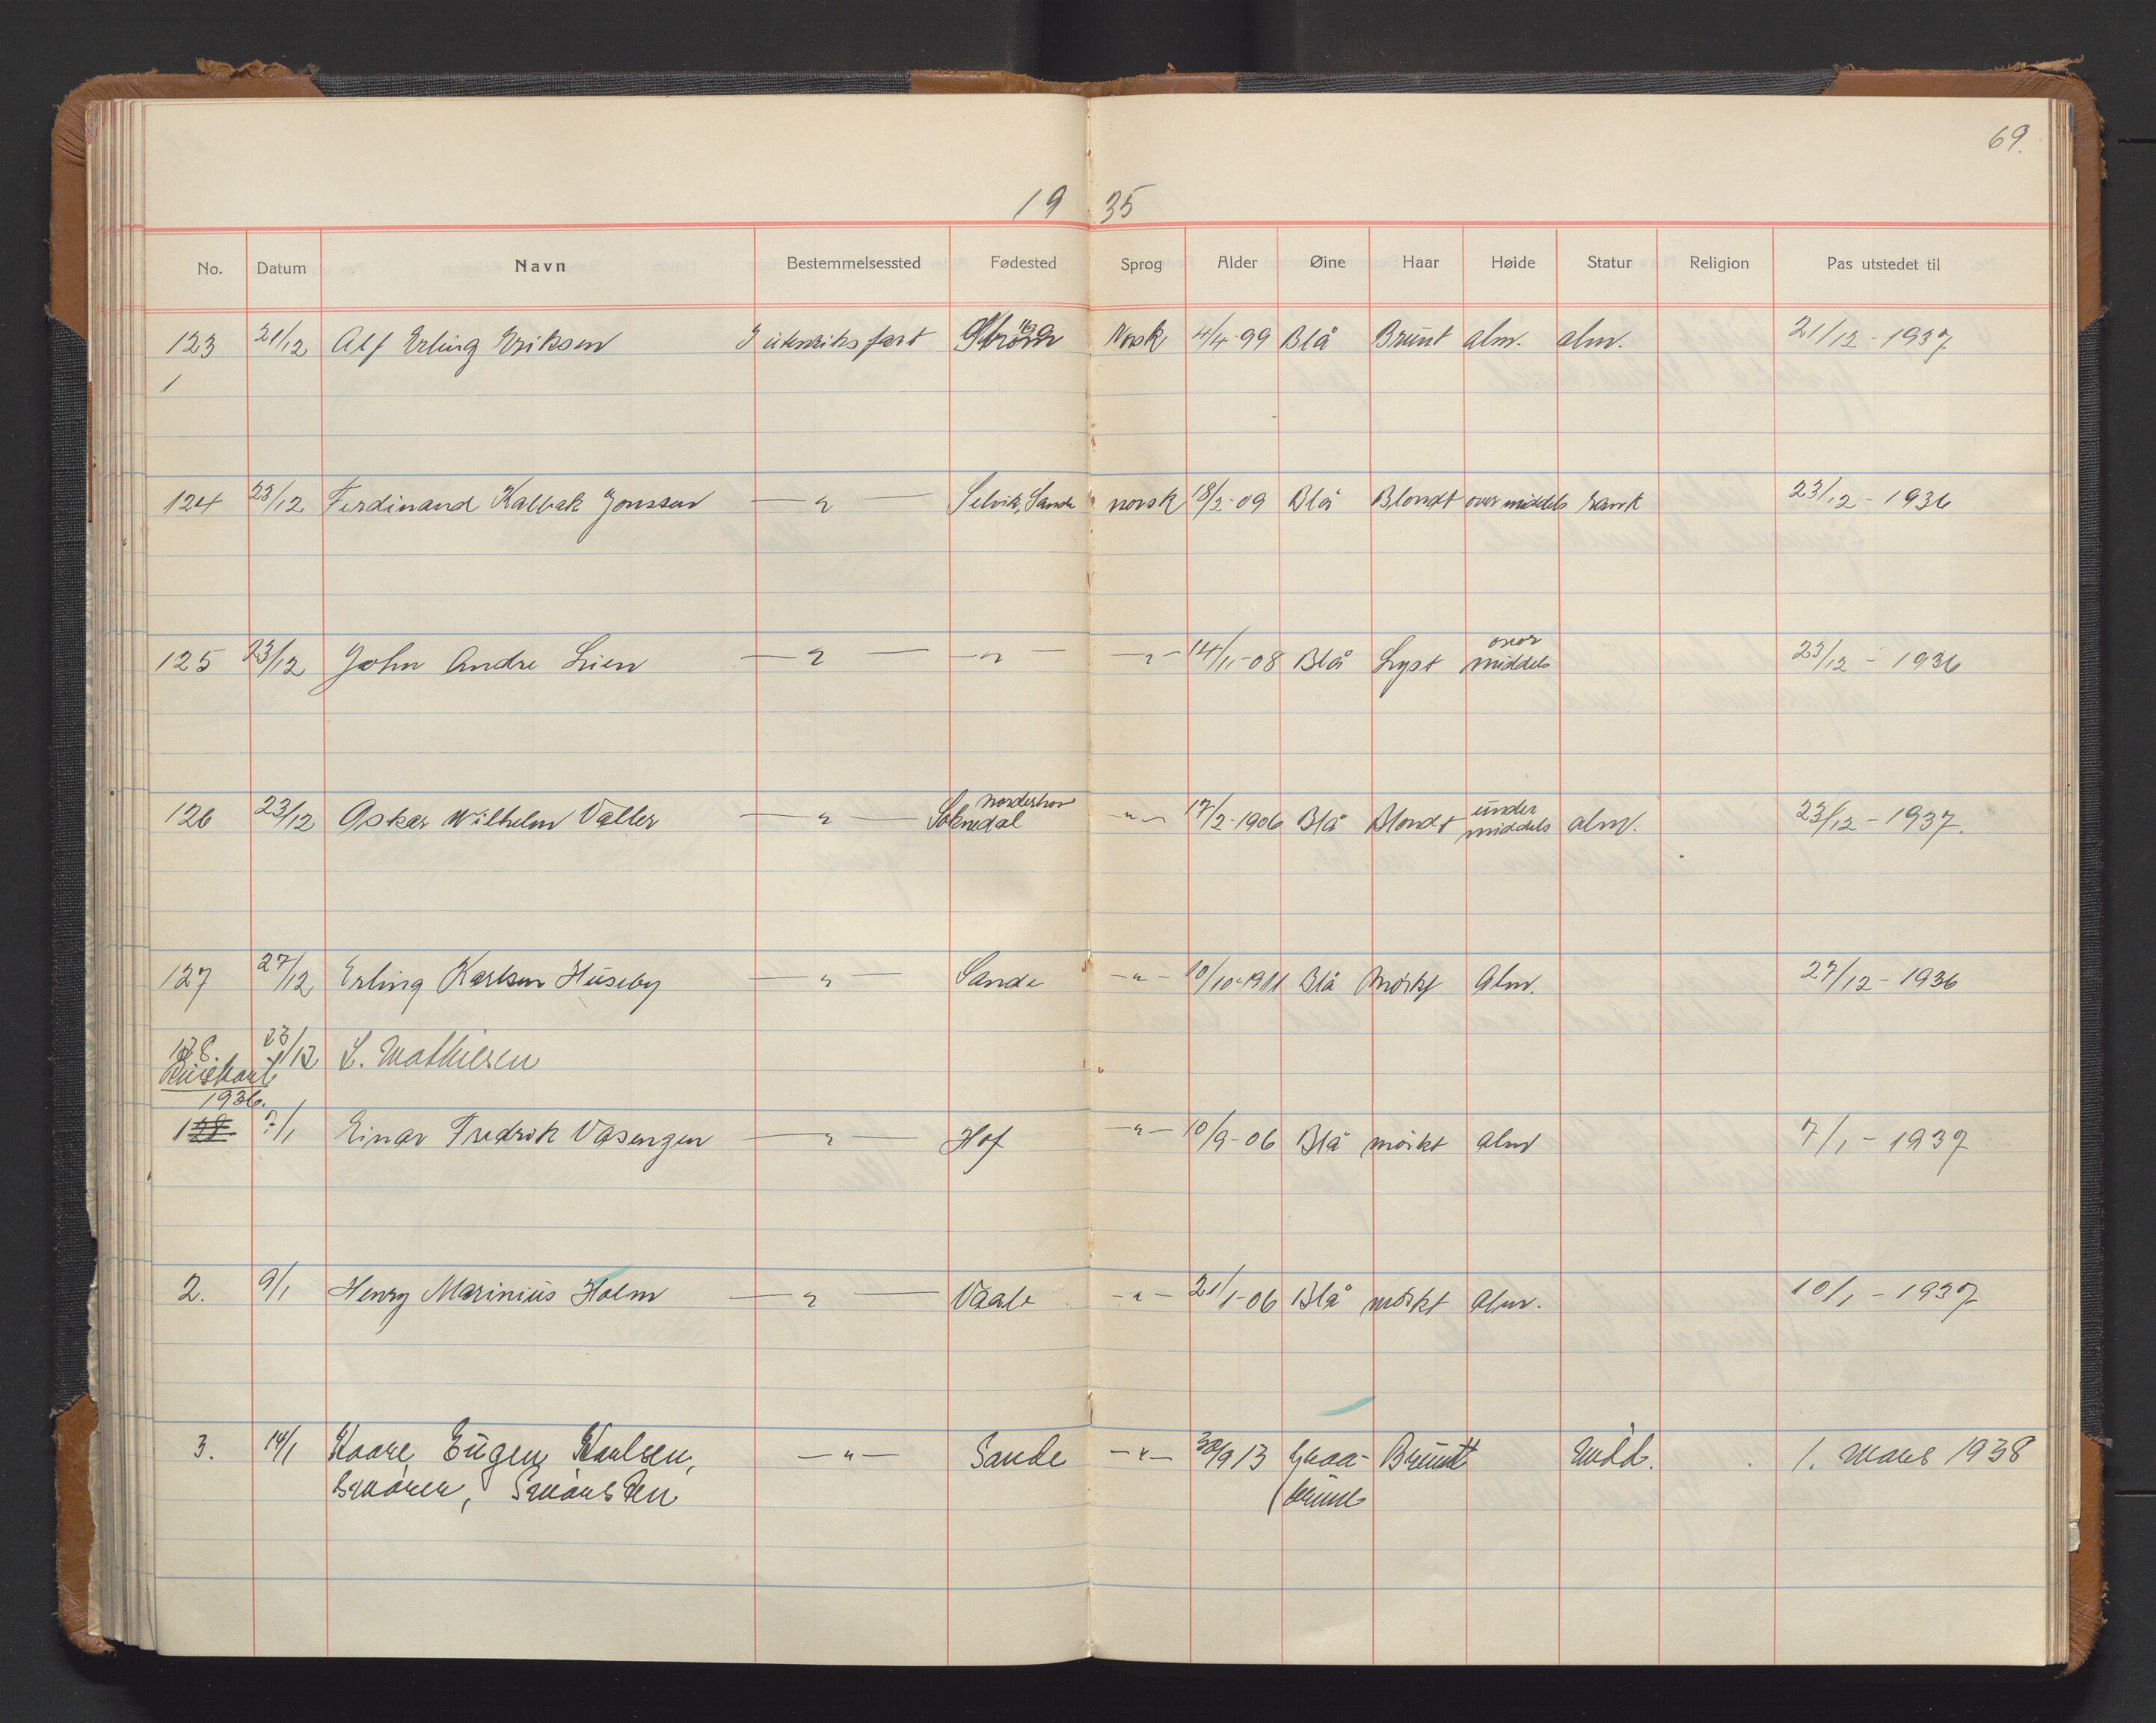 69.
19 35
No. Datum Navn Bestemmelsessted Fødested Sprog Alder Øine Haar Høide Statur Religion Pas utstedet til
123 21/12 Alf Erling Eriksen I utenriksfart Norsk 4/4-99 Blå Brunt alm. alm. 21/12 - 1937
1
124 23/12 Ferdinand Kalbak Jonssen — " — Selvik, Sande norsk 18/2-09 Blå Blondt over middels 23/12 - 1936
over
125 23/12 John Andre Lien — " — — " — — " — 14/11-08 Blå Lyst middels 23/12 - 1936
Norderhov under
126 23/12 Oskar Wilhelm Valler — " — Soknedal — " — 17/2-1906 Blå Blondt middels alm. 23/12 - 1937.
127 27/12 Erling Karlsen Huseby — " — Sande — " — 10/10-1911 Blå Mørkt Alm. 27/12 - 1936
128. 23/12 L. Mathiesen
1936.
1 7/1 Einar Fredrik Vasengen — " — Hof — " — 10/9-06 Blå mørkt alm 7/1 - 1937
2. 9/1 Henry Marinius Holm — " — Vaale — " — 21/1-06 Blå mørkt alm. 10/1 - 1937
3. 14/1 Kaare Eugen Karlsen, — " — Sande — " — 30/9 13 Graa- Brunt Midd. 1. Mars 1938